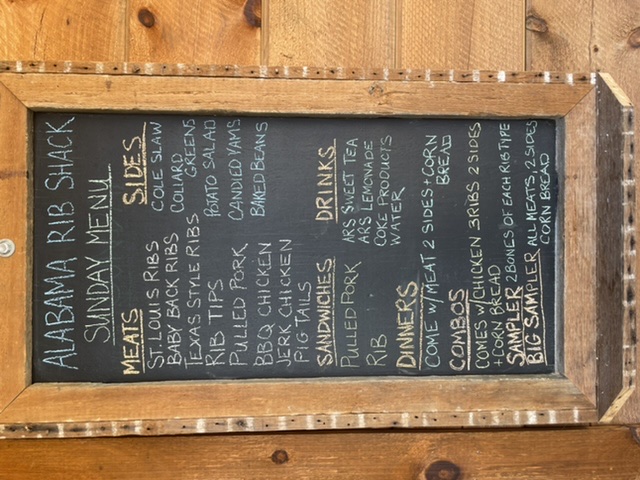 ALABAMA RIB SHACK
SUNDAY MENU
MEATS
ST. LOUIS RIBS
BABY BACK RIBS
TEXAS STYLE RIBS
RIB TIPS
PULLED PORK
BBQ CHICKEN
JERK CHICKEN
PIG TAILS
SIDES
COLE SLAW
COLLARD
GREENS
POTATO SALAD
CANDIED YAMS
BAKED BEANS
SANDWICHES
PULLED PORK
RIB
DRINKS
ARS SWEET TEA
ARS LEMONADE
COKE PRODUCTS
WATER
DINNERS
COME W/ MEAT 2 SIDES + CORN
BREAD
COMBOS
COMES W/ CHICKEN 3 RIBS 2 SIDES
+ CORN BREAD
SAMPLER 2 BONES OF EACH RIB TYPE
BIG SAMPLER ALL MEATS, 2 SIDES
CORN BREAD